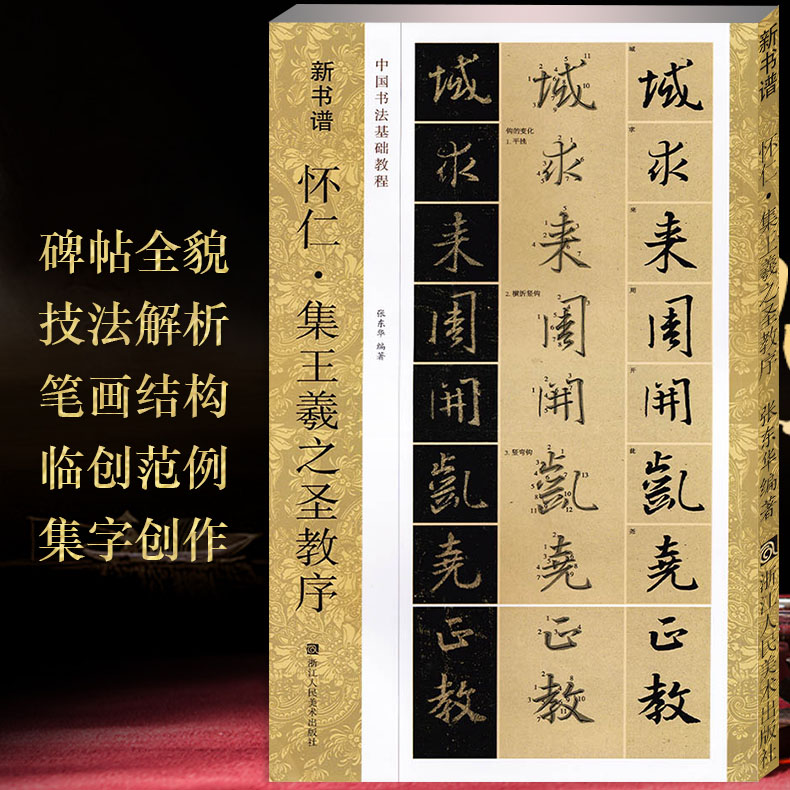 碑帖全貌
技法解析
笔画结构
临创范例
集字创作
新书谱
怀仁·集王羲之圣教序
浙江人民美术出版社
中国书法基础教程
张东华 编著
域 域 域 域
钩的变化
1. 平挑
求 求 求 求
来 来 来
2. 横折竖钩
周 周 周 周
開 開 開 开
3. 竖弯钩
堯 堯 堯 尧
正 正 正
教 教 教
新书谱
怀仁·集王羲之圣教序
张东华编著
浙江人民美术出版社